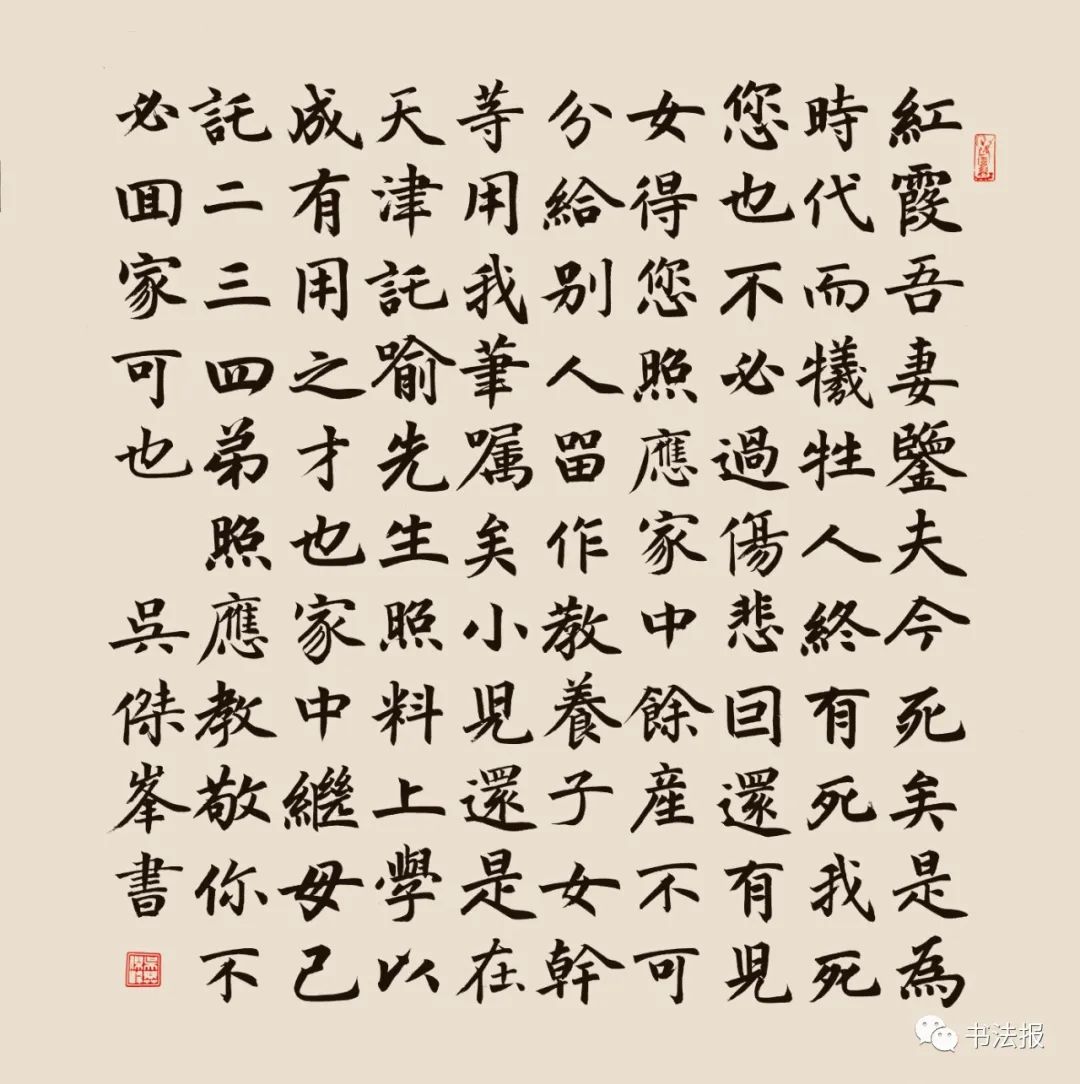 紅霞吾妻鑒夫今死矣是為
時代而犧牲人終有死我死
您也不必過傷悲回還有見
女得您照應家中餘産不可
分給別人留作教養子女幹
等用我筆嘱矣小児還是在
天津託喻先生照料上學以
成有用之才也家中繼母已
託二三四弟照應教敬你不
必回家可也 吳傑峯書
书法报